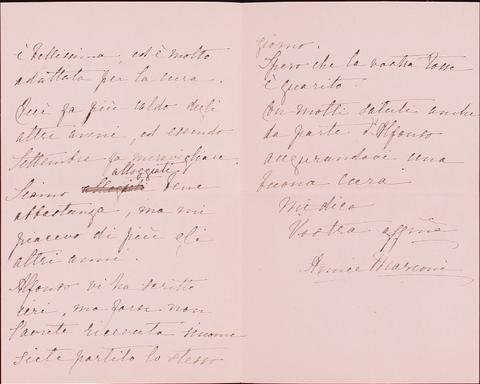 è bellissima, ed è molto
adattata per la cura.
Qui fa più caldo degli
altri anni, ed essendo
Settembre fa meravigliare.
alloggiati
Siamo bene
abbastanza, ma mi
piacevo di più gli
altri anni.
Alfonso vi ha scritto
ieri, ma forse non
l'avrete ricevuta
siete partito lo stesso
giorno.
Spero che la vostra tosse
è guarita.
Con molti saluti anche
da parte d'Alfonso
augurandovi una
buona cura
mi dico
Vostra affma
Annie Marconi